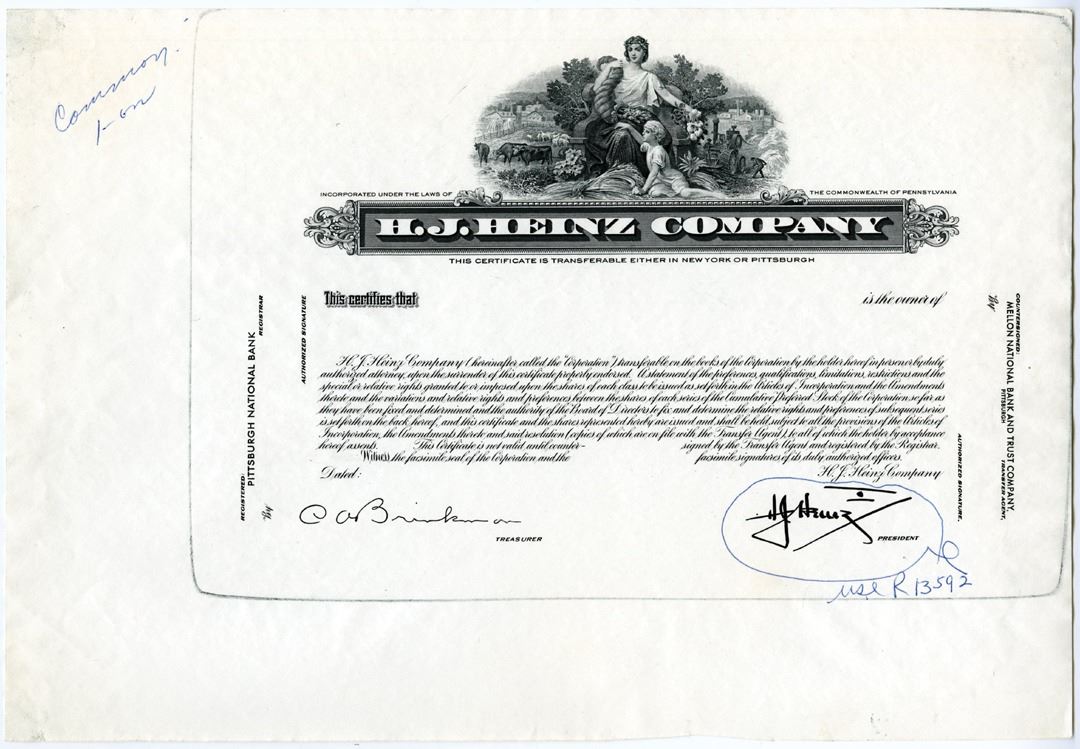 Common.
1- on
INCORPORATED UNDER THE LAWS OF THE COMMONWEALTH OF PENNSYLVANIA
H.J. HEINZ COMPANY
THIS CERTIFICATE IS TRANSFERABLE EITHER IN NEW YORK OR PITTSBURGH
This certifies that is the owner of
H. J. Heinz Company (hereinafter called the "Corporation") transferable on the books of the Corporation by the holder hereof in person or by duly
authorized attorney, upon the surrender of this certificate properly endorsed. A statement of the preferences, qualifications, limitations, restrictions and the
special or relative rights granted to or imposed upon the shares of each class to be issued as set forth in the Articles of Incorporation and the Amendments
thereto and the variations and relative rights and preferences between the shares of each series of the Cumulative Preferred Stock of the Corporation so far as
they have been fixed and determined and the authority of the Board of Directors to fix and determine the relative rights and preferences of subsequent series
is set forth on the back hereof, and this certificate and the shares represented hereby are issued and shall be held subject to all the provisions of the Articles of
Incorporation, the Amendments thereto and said resolution (copies of which are on file with the Transfer Agent), to all of which the holder by acceptance
hereof assents. This Certificate is not valid until counter- signed by the Transfer Agent and registered by the Registrar.
Witness the facsimile seal of the Corporation and the facsimile signatures of its duly authorized officers.
Dated: H. J. Heinz Company
O A Brinkman
TREASURER
HJ Heinz II
PRESIDENT
use R 13592
REGISTERED:
PITTSBURGH NATIONAL BANK
REGISTRAR
By
AUTHORIZED SIGNATURE
COUNTERSIGNED:
MELLON NATIONAL BANK AND TRUST COMPANY,
PITTSBURGH
TRANSFER AGENT,
By
AUTHORIZED SIGNATURE.